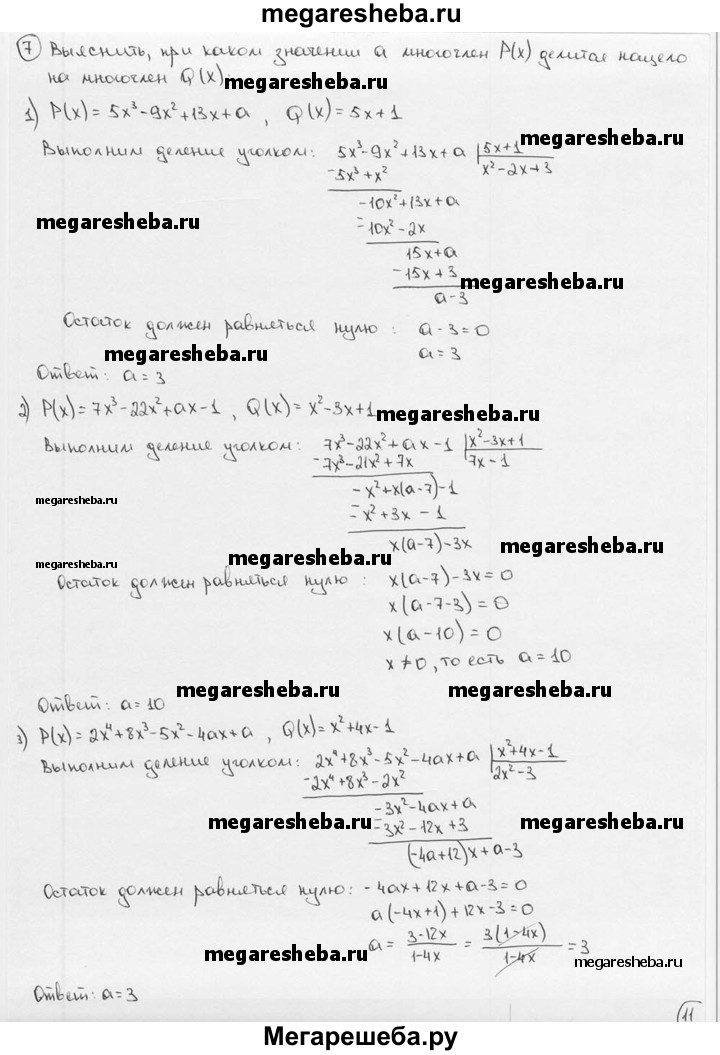 megaresheba.ru
7 Выяснить, при каком значении a многочлен P(x) делится нацело
на многочлен Q(x). megaresheba.ru
1) P(x) = 5x³-9x²+13x+a, Q(x) = 5x+1
megaresheba.ru
Выполним деление уголком: 5x³-9x²+13x+a |5x+1
-5x³+x² x²-2x+3
-10x²+13x+a
megaresheba.ru
-10x²-2x
15x+a
-15x+3 megaresheba.ru
a-3
Остаток должен равняться нулю: a-3=0
megaresheba.ru a=3
Ответ: a=3
2) P(x)=7x³-22x²+ax-1, Q(x)=x²-3x+1 megaresheba.ru
Выполним деление уголком: 7x³-22x²+ax-1 |x²-3x+1
-7x³-21x²+7x 7x-1
-x²+x(a-7)-1
megaresheba.ru
-x²+3x-1
x(a-7)-3x megaresheba.ru
megaresheba.ru megaresheba.ru
Остаток должен равняться нулю: x(a-7)-3x=0
x(a-7-3)=0
x(a-10)=0
x≠0, то есть a=10
Ответ: a=10 megaresheba.ru megaresheba.ru
3) P(x)=2x⁴+8x³-5x²-4ax+a, Q(x)=x²+4x-1
Выполним деление уголком: 2x⁴+8x³-5x²-4ax+a |x²+4x-1
-2x⁴+8x³-2x² 2x²-3
-3x²-4ax+a
megaresheba.ru -3x²-12x+3 megaresheba.ru
(-4a+12)x+a-3
Остаток должен равняться нулю: -4ax+12x+a-3=0
a(-4x+1)+12x-3=0
megaresheba.ru a= 3-12x/1-4x = 3(1-4x)/1-4x =3 megaresheba.ru
Ответ: a=3
megaresheba.ru
11
Мегарешеба.ру